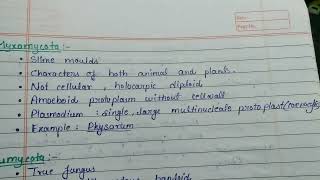 Date:
Page No.
Myxomycota :-
• Slime moulds
• Characters of both animal and plants.
• Not cellular, holocarpic diploid
• Amoeboid protoplasm without cellwall
• Plasmodium : single, large multinucleate protoplast/
• Example : Physarum
umycota :-
• True fungus
haploid